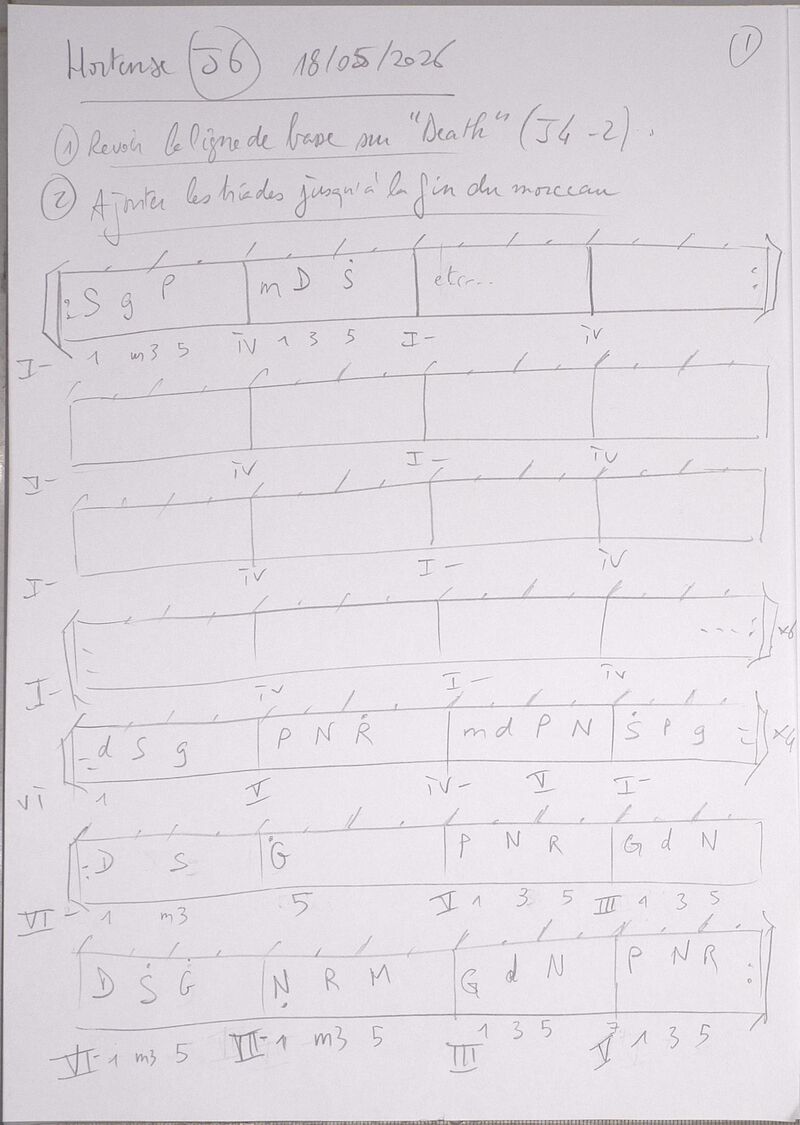 Hortense J6 18/05/2026 1
1 Revoir la ligne de basse sur "Death" (J4-2).
2 Ajouter les triades jusqu'à la fin du morceau
: S g P | m D Ṡ | etc... | :
I- 1 m3 5 iv 1 3 5 I- iv
I- iv I- iv
I- iv I- iv
: ---- : x6
I- iv I- iv
: d S g | P N Ṙ | m d P N | Ṡ P g : x4
vi 1 V iv- V I-
: D S | Ġ | P N R | G d N
VI- 1 m3 5 V 1 3 5 III 1 3 5
D Ṡ Ġ | Ṇ R M | G d N | P N R :
VI- 1 m3 5 VII- 1 m3 5 III 1 3 5 V 1 3 5